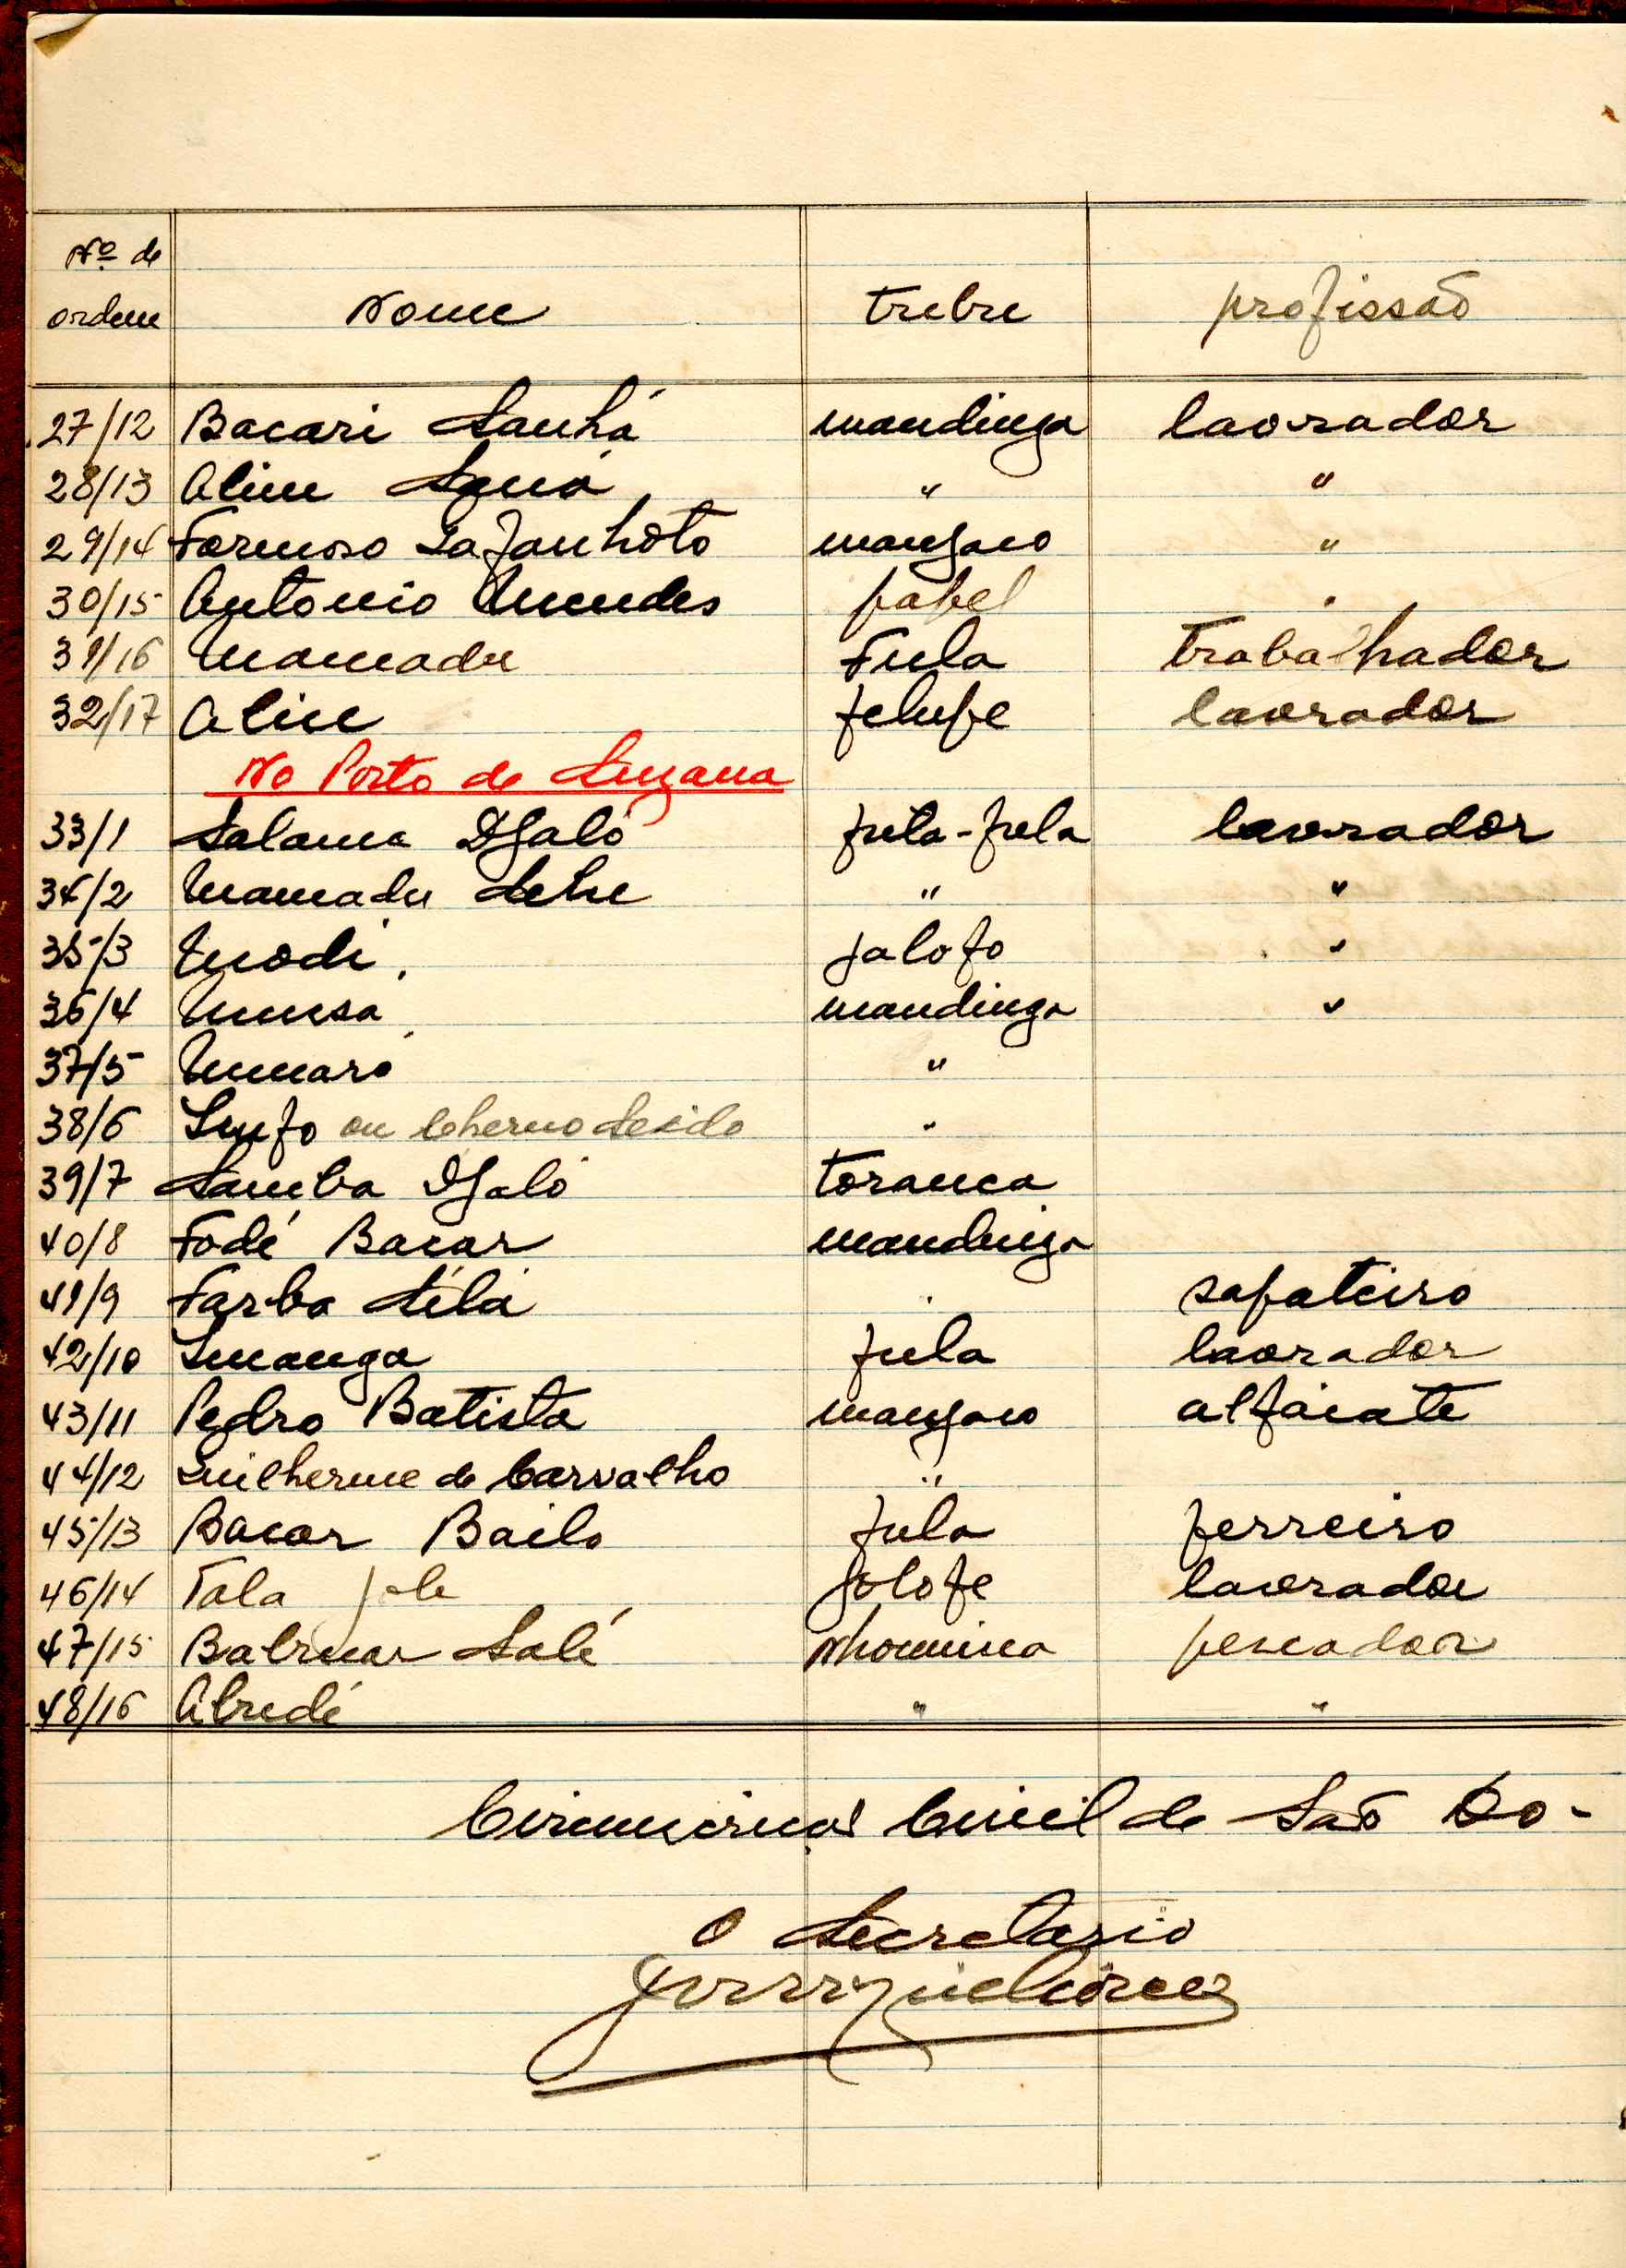 Nº de
ordem Nome trebre profissão
27/12 Bacari Sanhá mandinga lavrador
28/13 Aliu Sana " "
29/14 Formoso Gafanhoto manjaco "
30/15 Antonio Mendes papel "
31/16 Mamadu Fula trabalhador
32/17 Aliu felupe lavrador
No Porto de Suzana
33/1 Salama Djaló futa-fula lavrador
34/2 Mamadu " "
35/3 Modi jalofo "
36/4 Mussa mandinga "
37/5 Umaro "
38/6 ou Cherno Seido "
39/7 Samba Djaló toranca
40/8 Fodé Bacar mandinga
41/9 Farba Silá " sapateiro
42/10 fula lavrador
43/11 Pedro Batista manjaco alfaiate
44/12 Guilherme de Carvalho "
45/13 Bacar Bailo fula ferreiro
46/14 Tala jolofe lavrador
47/15 Salé nhominca pescador
48/16 " "
Civil de São Do-
O Secretario